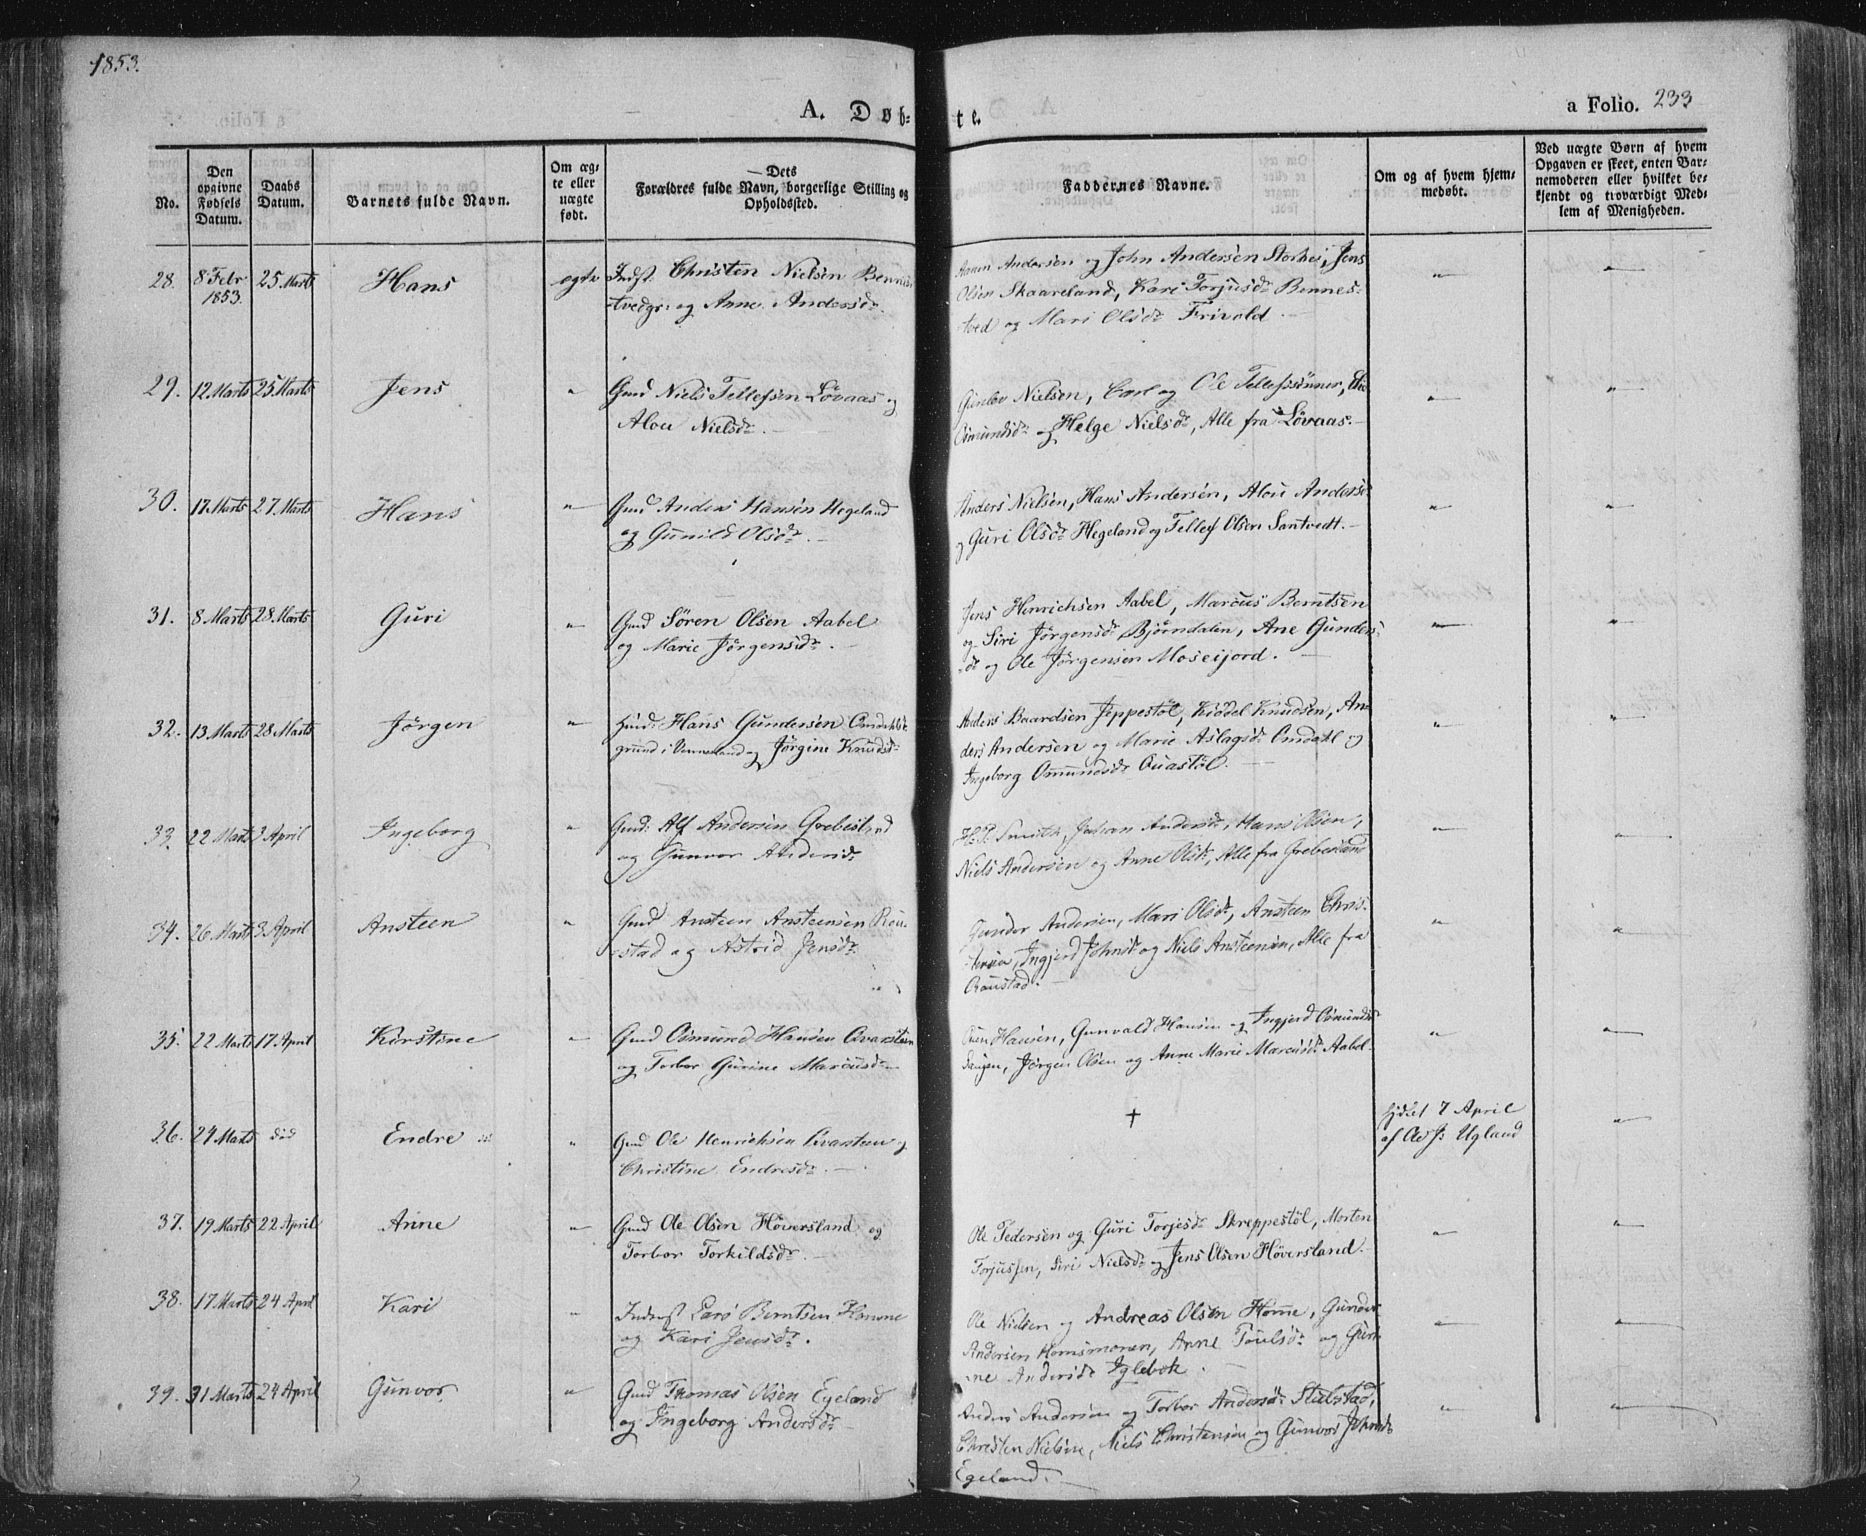 1853.
A. Døb- te.
a Folio. 233
No.
Den opgivne Fødsels Datum.
Daabs Datum.
Barnets fulde Navn.
Om ægte eller uægte født.
Dets Forældres fulde Navn, borgerlige Stilling og Opholdssted.
Faddernes Navne.
Om og af hvem hjemmedøbt.
Ved uægte Børn af hvem Opgaven er skeet, enten Barnemoderen eller hvilket bekjendt og troværdigt Medlem af Menigheden.
28. 8 Febr 1853. 25 Marts Hans egte Indst. Christen Nielsen Bennes-
tvedgr: og Anne Andersdr.
Andersen og John Andersen Storhei, Jens
Olsen Skaareland, Kari Torjusdr Bennes-
tved og Mari Olsdr Frivold.
29. 12 Marts 25 Marts Jens " Gmd Niels Tellefsen Løvaas og
Alou Nielsdr.
Gunlov Nielsen, Carl og Ole Tellefssønner,
Osmundsdr og Helge Nielsdr, Alle fra Løvaas.
30. 17. Marts 27 Marts Hans " Gmd Anders Hansen Hegeland
og Gunild Olsdr.
Anders Nielsen, Hans Andersen, Alou Andersd.
og Guri Olsdr Hegeland og Tellef Olsen Santvedt.
31. 8 Marts 28 Marts Guri " Gmd Søren Olsen Aabel
og Marie Jørgensdr.
Jens Henrichsen Aabel, Marcus Berntsen
og Siri Jørgensdr Bjørndalen, Ane Gunders-
dr og Ole Jørgensen Moseijord.
32. 13 Marts 28 Marts Jørgen " Hans Gundersen Omdahls-
grund i Venneland og Jørgine Knudsdr
Anders Baardsen Jeppestøl, Kiddel Knudsen, An-
ders Andersen og Marie Aslagsdr Omdahl og
Ingeborg Omundsdr Ouastøl.
33. 22 Marts 3 April Ingeborg " Gmd: Alf Andersen Grebesland
og Gunvor Andersdr
Smith, Johan Andersdr, Hans Olsen,
Niels Andersen og Anne Olsdr, Alle fra Grebesland
34. 26 Marts 3 April Ansteen " Gmd Ansteen Ansteensen Rou-
stad og Astrid Jensdr.
Gunder Andersen, Mari Olsdr, Ansteen Chris-
tensen, Ingjerd Johnsdr og Niels Ansteensen, Alle fra
Roustad.
35. 22 Marts 17 April Kirstine " Gmd Osmund Hansen Qvarstein
og Torbor Gurine Marcusdr
Hansen, Gunvald Hansen og Ingjerd Osmundsdr
Jørgen Olsen og Anne Marie Marcusdr Aabel.
36. 24 Marts did Endre " Gmd Ole Henrichsen Qvarsteen og
Christine Endresdr.
†
hjdbt 7 April
af Ole Js Ugland
37. 19 Marts 22 April Anne " Gmd Ole Olsen Høversland og
Torbor Torkildsdr.
Ole Pedersen og Guri Torjesdr Skreppestøl, Morten
Torjussen, Siri Nielsdr og Jens Olsen Høversland.
38. 17 Marts 24 April Kari " Inderst Lars Berntsen Homme
og Kari Jensdr.
Ole Nielsen og Andreas Olsen Home, Gunder
Andersen Homsmonen, Anne Toulsdr og Guri-
ne Andersdr Iglebæk.
39. 31 Marts 24 April Gunvor " Gmd Thomas Olsen Egeland
og Ingeborg Andersdr
Anders Andersen og Torbor Andersdr Stulstad,
Christen Nielsen, Niels Christensen og Gunvor Johnsdr
Egeland.